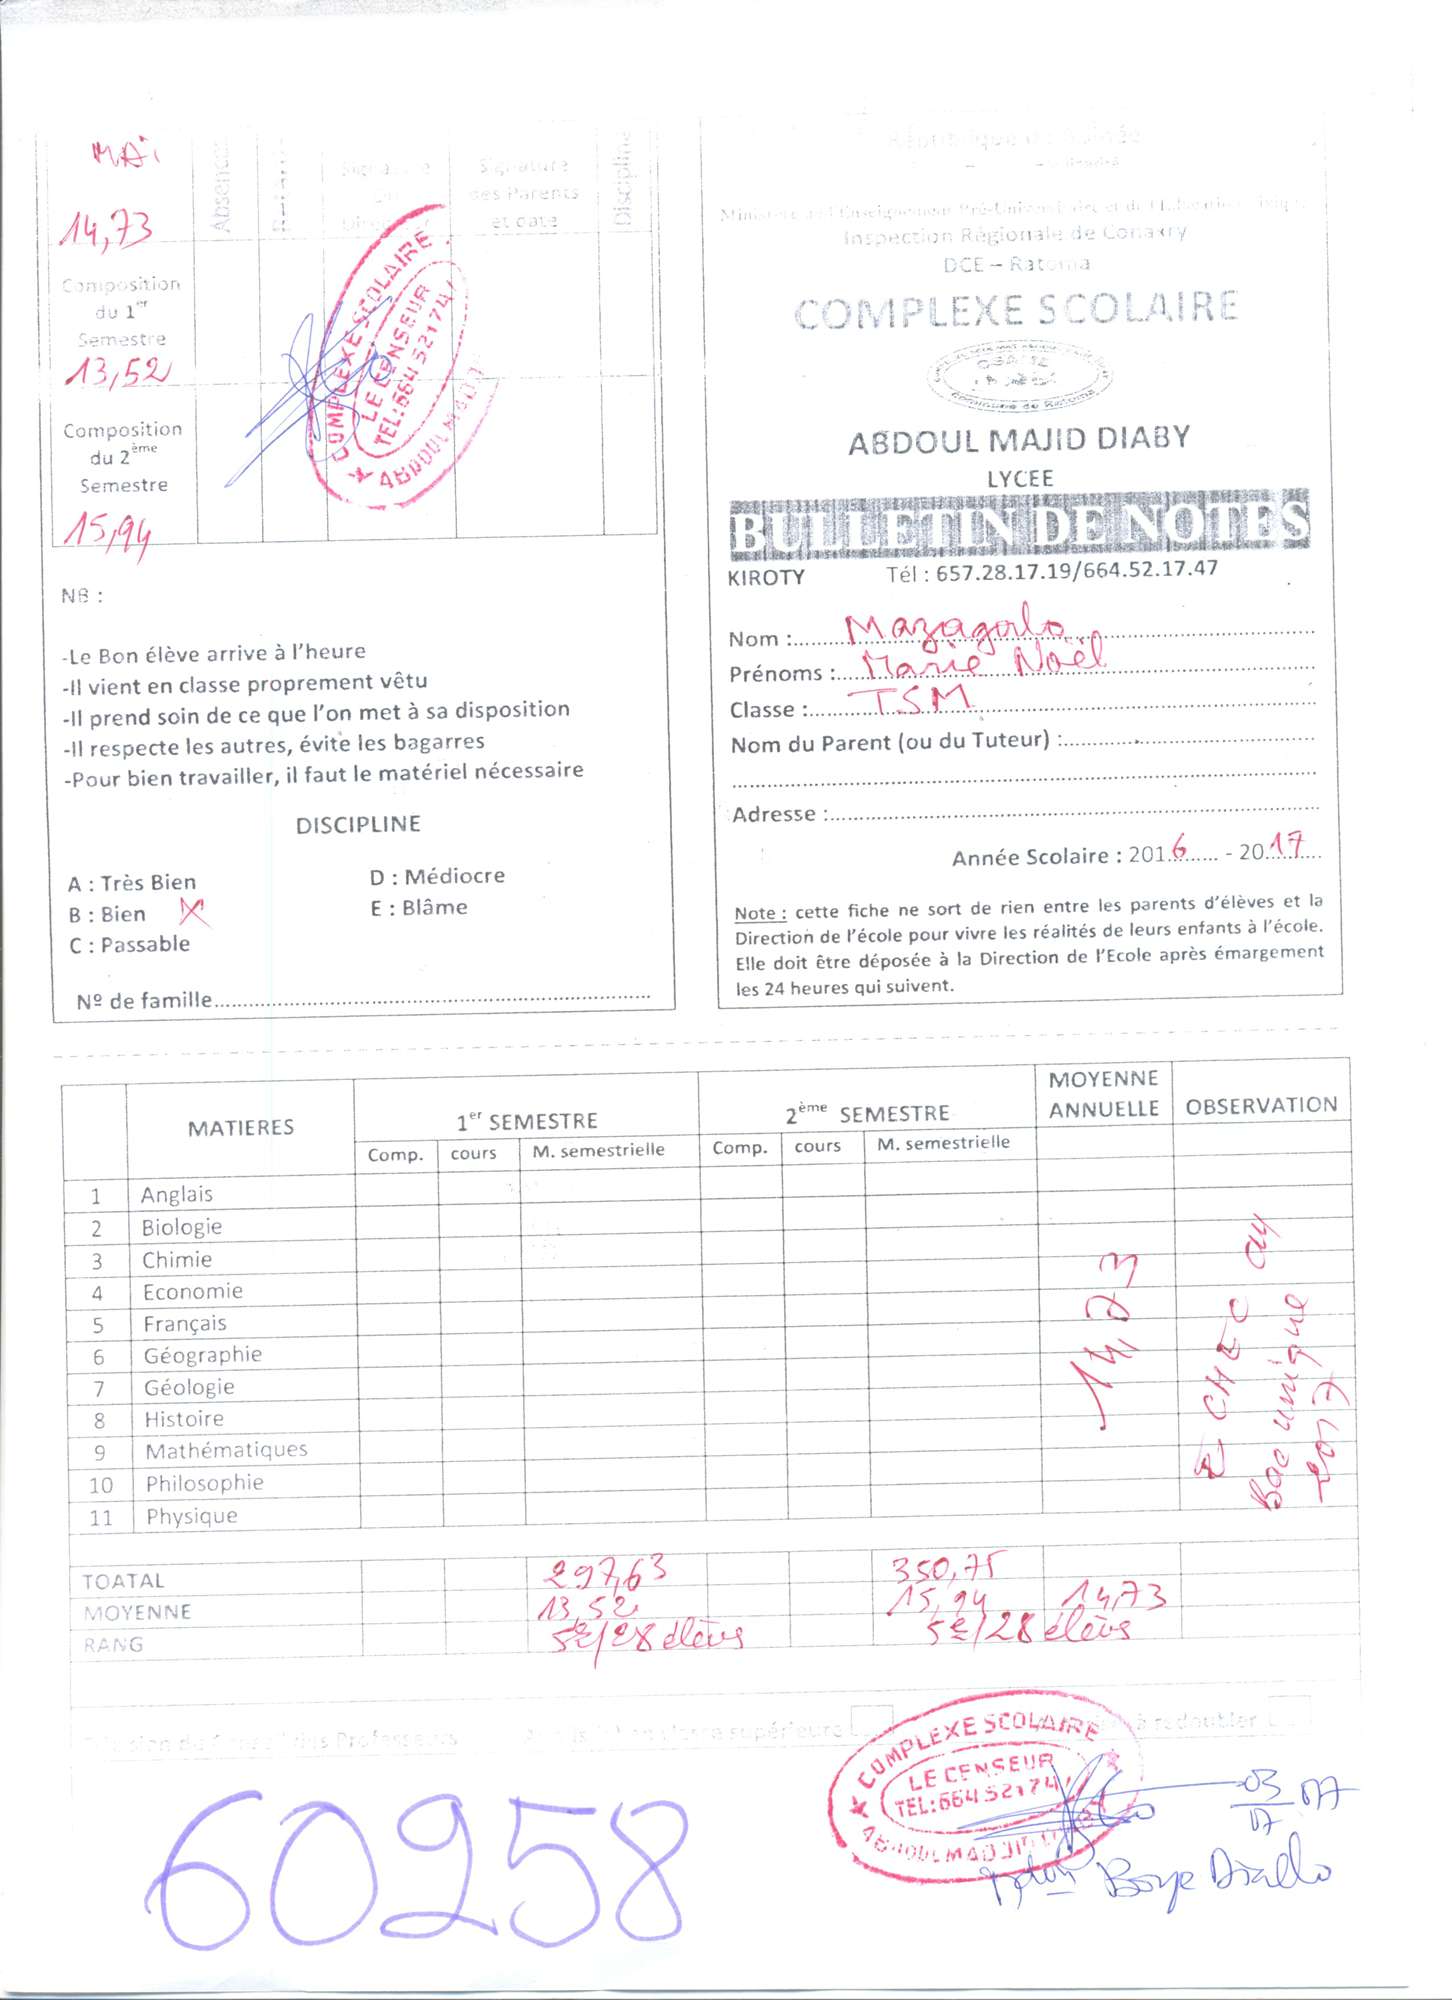 MAI
Absences
Signature
Du
Directeur
Signature
des Parents
et date
Discipline
14,73
Composition
du 1er
Semestre
13,52
Composition
du 2ème
Semestre
15,94
COMPLEXE SCOLAIRE
LE CENSEUR
TEL:664521747
NB :
-Le Bon élève arrive à l'heure
-Il vient en classe proprement vêtu
-Il prend soin de ce que l'on met à sa disposition
-Il respecte les autres, évite les bagarres
-Pour bien travailler, il faut le matériel nécessaire
DISCIPLINE
A : Très Bien
B : Bien X
C : Passable
D : Médiocre
E : Blâme
Nº de famille
République de Guinée
Inspection Régionale de Conakry
DCE – Ratoma
COMPLEXE SCOLAIRE
Commune de Ratoma
ABDOUL MAJID DIABY
LYCEE
BULLETIN DE NOTES
KIROTY Tél : 657.28.17.19/664.52.17.47
Nom :
Prénoms : Marie Noël
Classe : TSM
Nom du Parent (ou du Tuteur) :
Adresse :
Année Scolaire : 2016 - 2017
Note : cette fiche ne sort de rien entre les parents d'élèves et la
Direction de l'école pour vivre les réalités de leurs enfants à l'école.
Elle doit être déposée à la Direction de l'Ecole après émargement
les 24 heures qui suivent.
MATIERES 1er SEMESTRE 2ème SEMESTRE MOYENNE ANNUELLE OBSERVATION
Comp. cours M. semestrielle Comp. cours M. semestrielle
1 Anglais
2 Biologie
3 Chimie
4 Economie
5 Français
6 Géographie
7 Géologie
8 Histoire
9 Mathématiques
10 Philosophie
11 Physique
14,73
ECHEC au
Bac unique
2017
TOATAL 297,63 350,75
MOYENNE 13,52 15,94 14,73
RANG 5e/28 élèves 5e/28 élèves
COMPLEXE SCOLAIRE
LE CENSEUR
TEL:664521747
60258
03
07 017
Boye Diallo